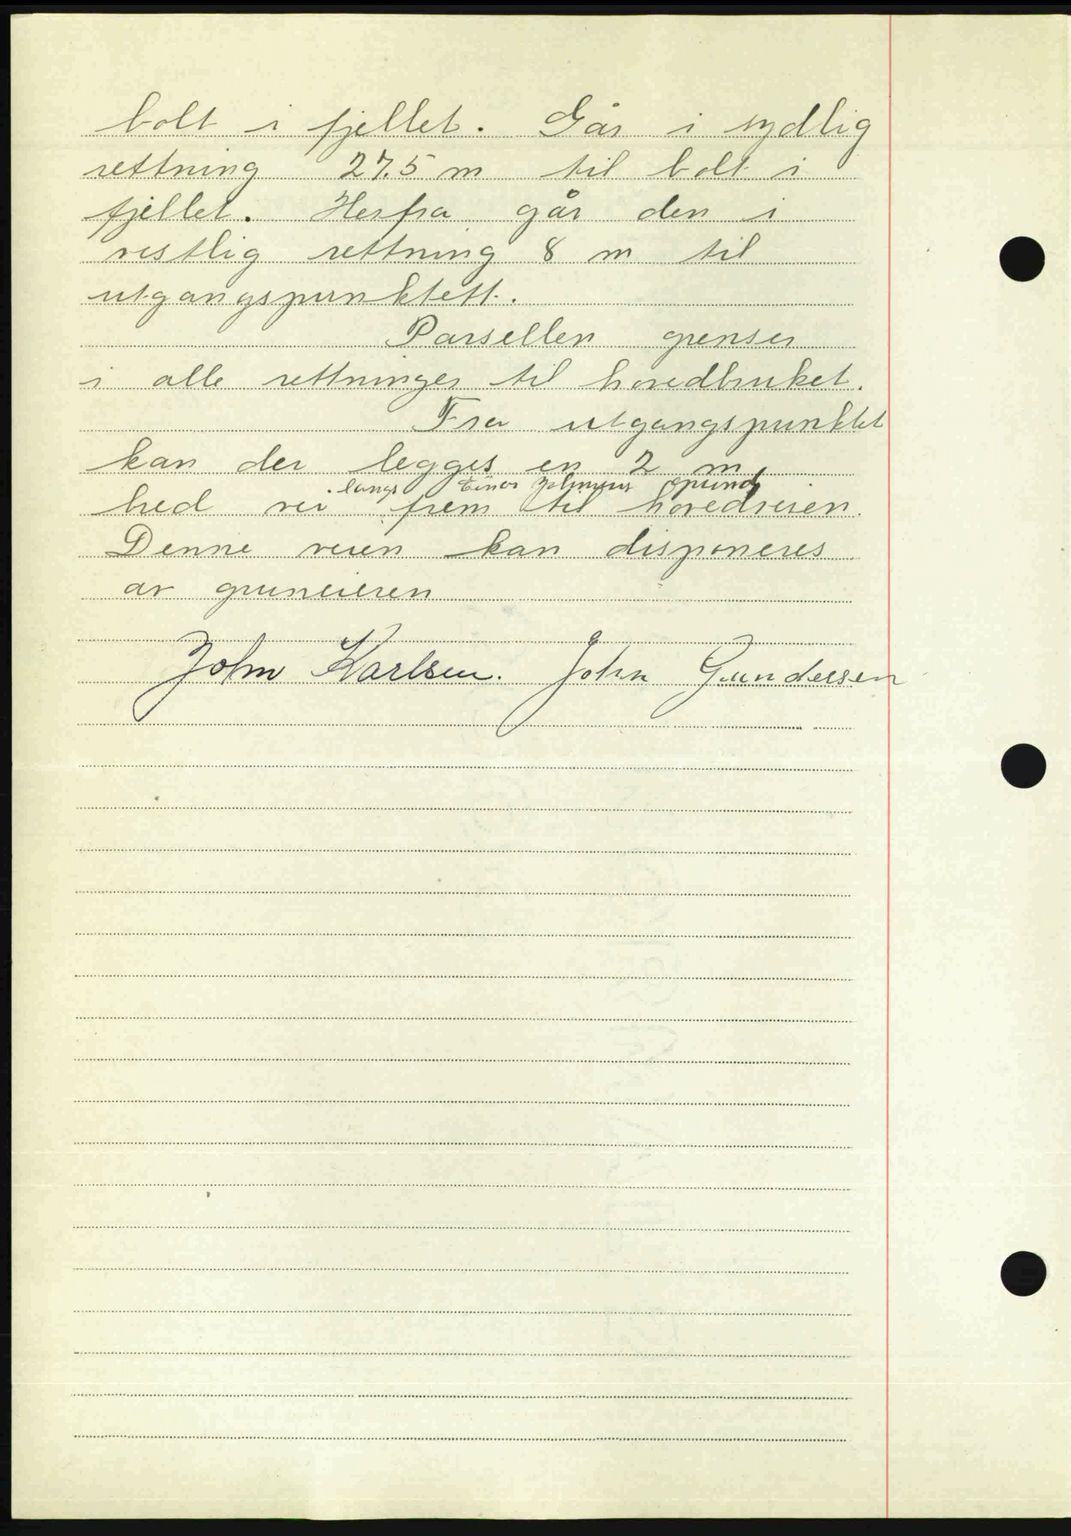 bolt i fjellet. Går i sydlig
rettning 27.5 m til bolt i
fjellet. Herfra går den i
vestlig rettning 8 m til
utgangspunktett.
Parsellen grenser
i alle rettninger til hovedbruket.
Fra utgangspunktet
kan der legges en 2 m
langs Einar grund
bred vei frem til hovedveien.
Denne veien kan disponeres
av gruneieren
John Karlsen. John Gundersen